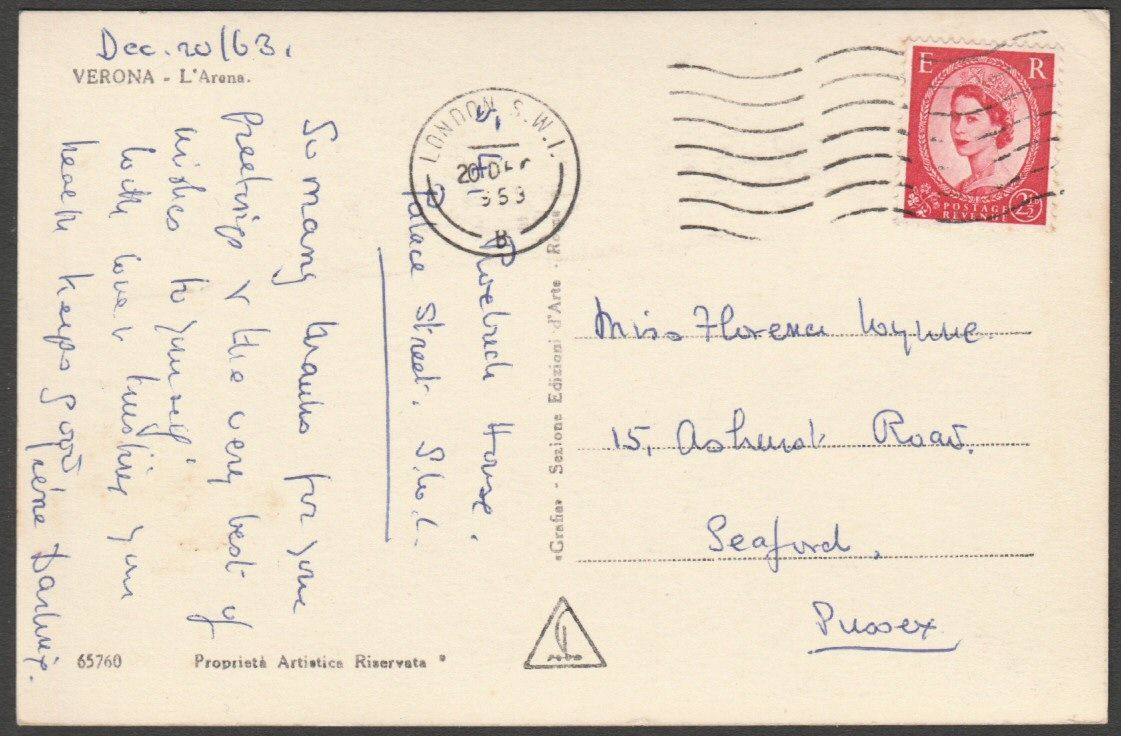 Dec. 20/63.
VERONA - L'Arena.
So many thanks for your
greetings & the very best of
wishes to yourself
with love & trusting your
health keeps good
Irene
House.
Palace Street. S.W.1.
LONDON S.W.1.
20 DEC
B
E R
POSTAGE
REVENUE
2½D
Miss Florence Wynne.
15, Ashurst Road.
Seaford.
Sussex
«Grafia» - Sezione Edizioni d'Arte - Roma
65760 Proprietà Artistica Riservata